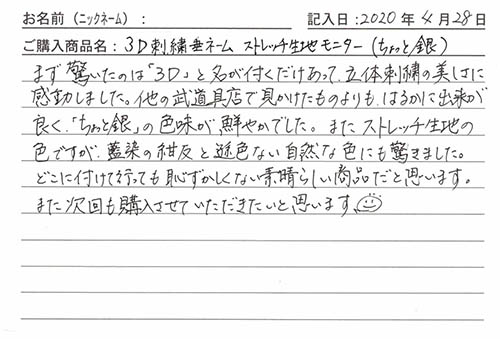 お名前（ニックネーム）： 記入日：2020年4月28日
ご購入商品名：3D刺繍垂ネーム ストレッチ生地モニター（ちょっと銀）
まず驚いたのは「3D」と名が付くだけあって、立体刺繍の美しさに
感動しました。他の武道具店で見かけたものよりも、はるかに出来が
良く、「ちょっと銀」の色味が鮮やかでした。またストレッチ生地の
色ですが、藍染の紺反と遜色ない自然な色にも驚きました。
どこに付けて行っても恥ずかしくない素晴らしい商品だと思います。
また次回も購入させていただきたいと思います。